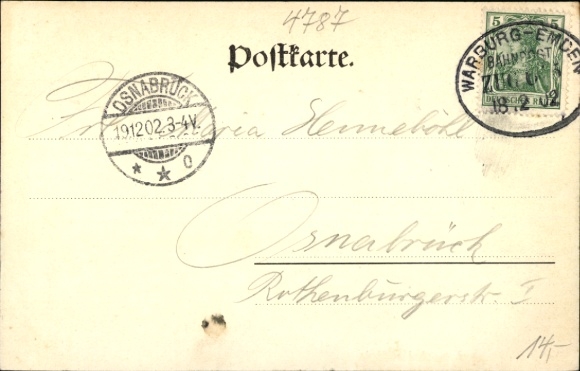 4787
Postkarte.
5 5
WARBURG-EMDEN
BAHNPOST
ZUG
DEUTSCHES REICH
18 12 02
OSNABRÜCK
19.12.02.3-4V.
* ★ o
Maria Henneböhl
Osnabrück
Rothenburgerstr. I
14,-